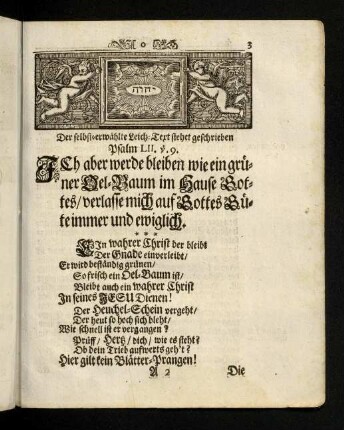 3
יהוה
Der selbst-erwählte Leich-Text stehet geschrieben
Psalm LII. v. 9.
ICh aber werde bleiben wie ein grü-
ner Oel-Baum im Hause Got-
tes/ verlasse mich auf Gottes Gü-
te immer und ewiglich.
* * *
EIn wahrer Christ der bleibt
Der Gnade einverleibt/
Er wird beständig grünen/
So frisch ein Oel-Baum ist/
Bleibt auch ein wahrer Christ
In seines JESU Dienen!
Der Heuchel-Schein vergeht/
Der heut so hoch sich bleht/
Wie schnell ist er vergangen?
Prüff/ Hertz/ dich/ wie es steht?
Ob dein Trieb aufwerts geh't?
Hier gilt kein Blätter-Prangen!
A 2 Die